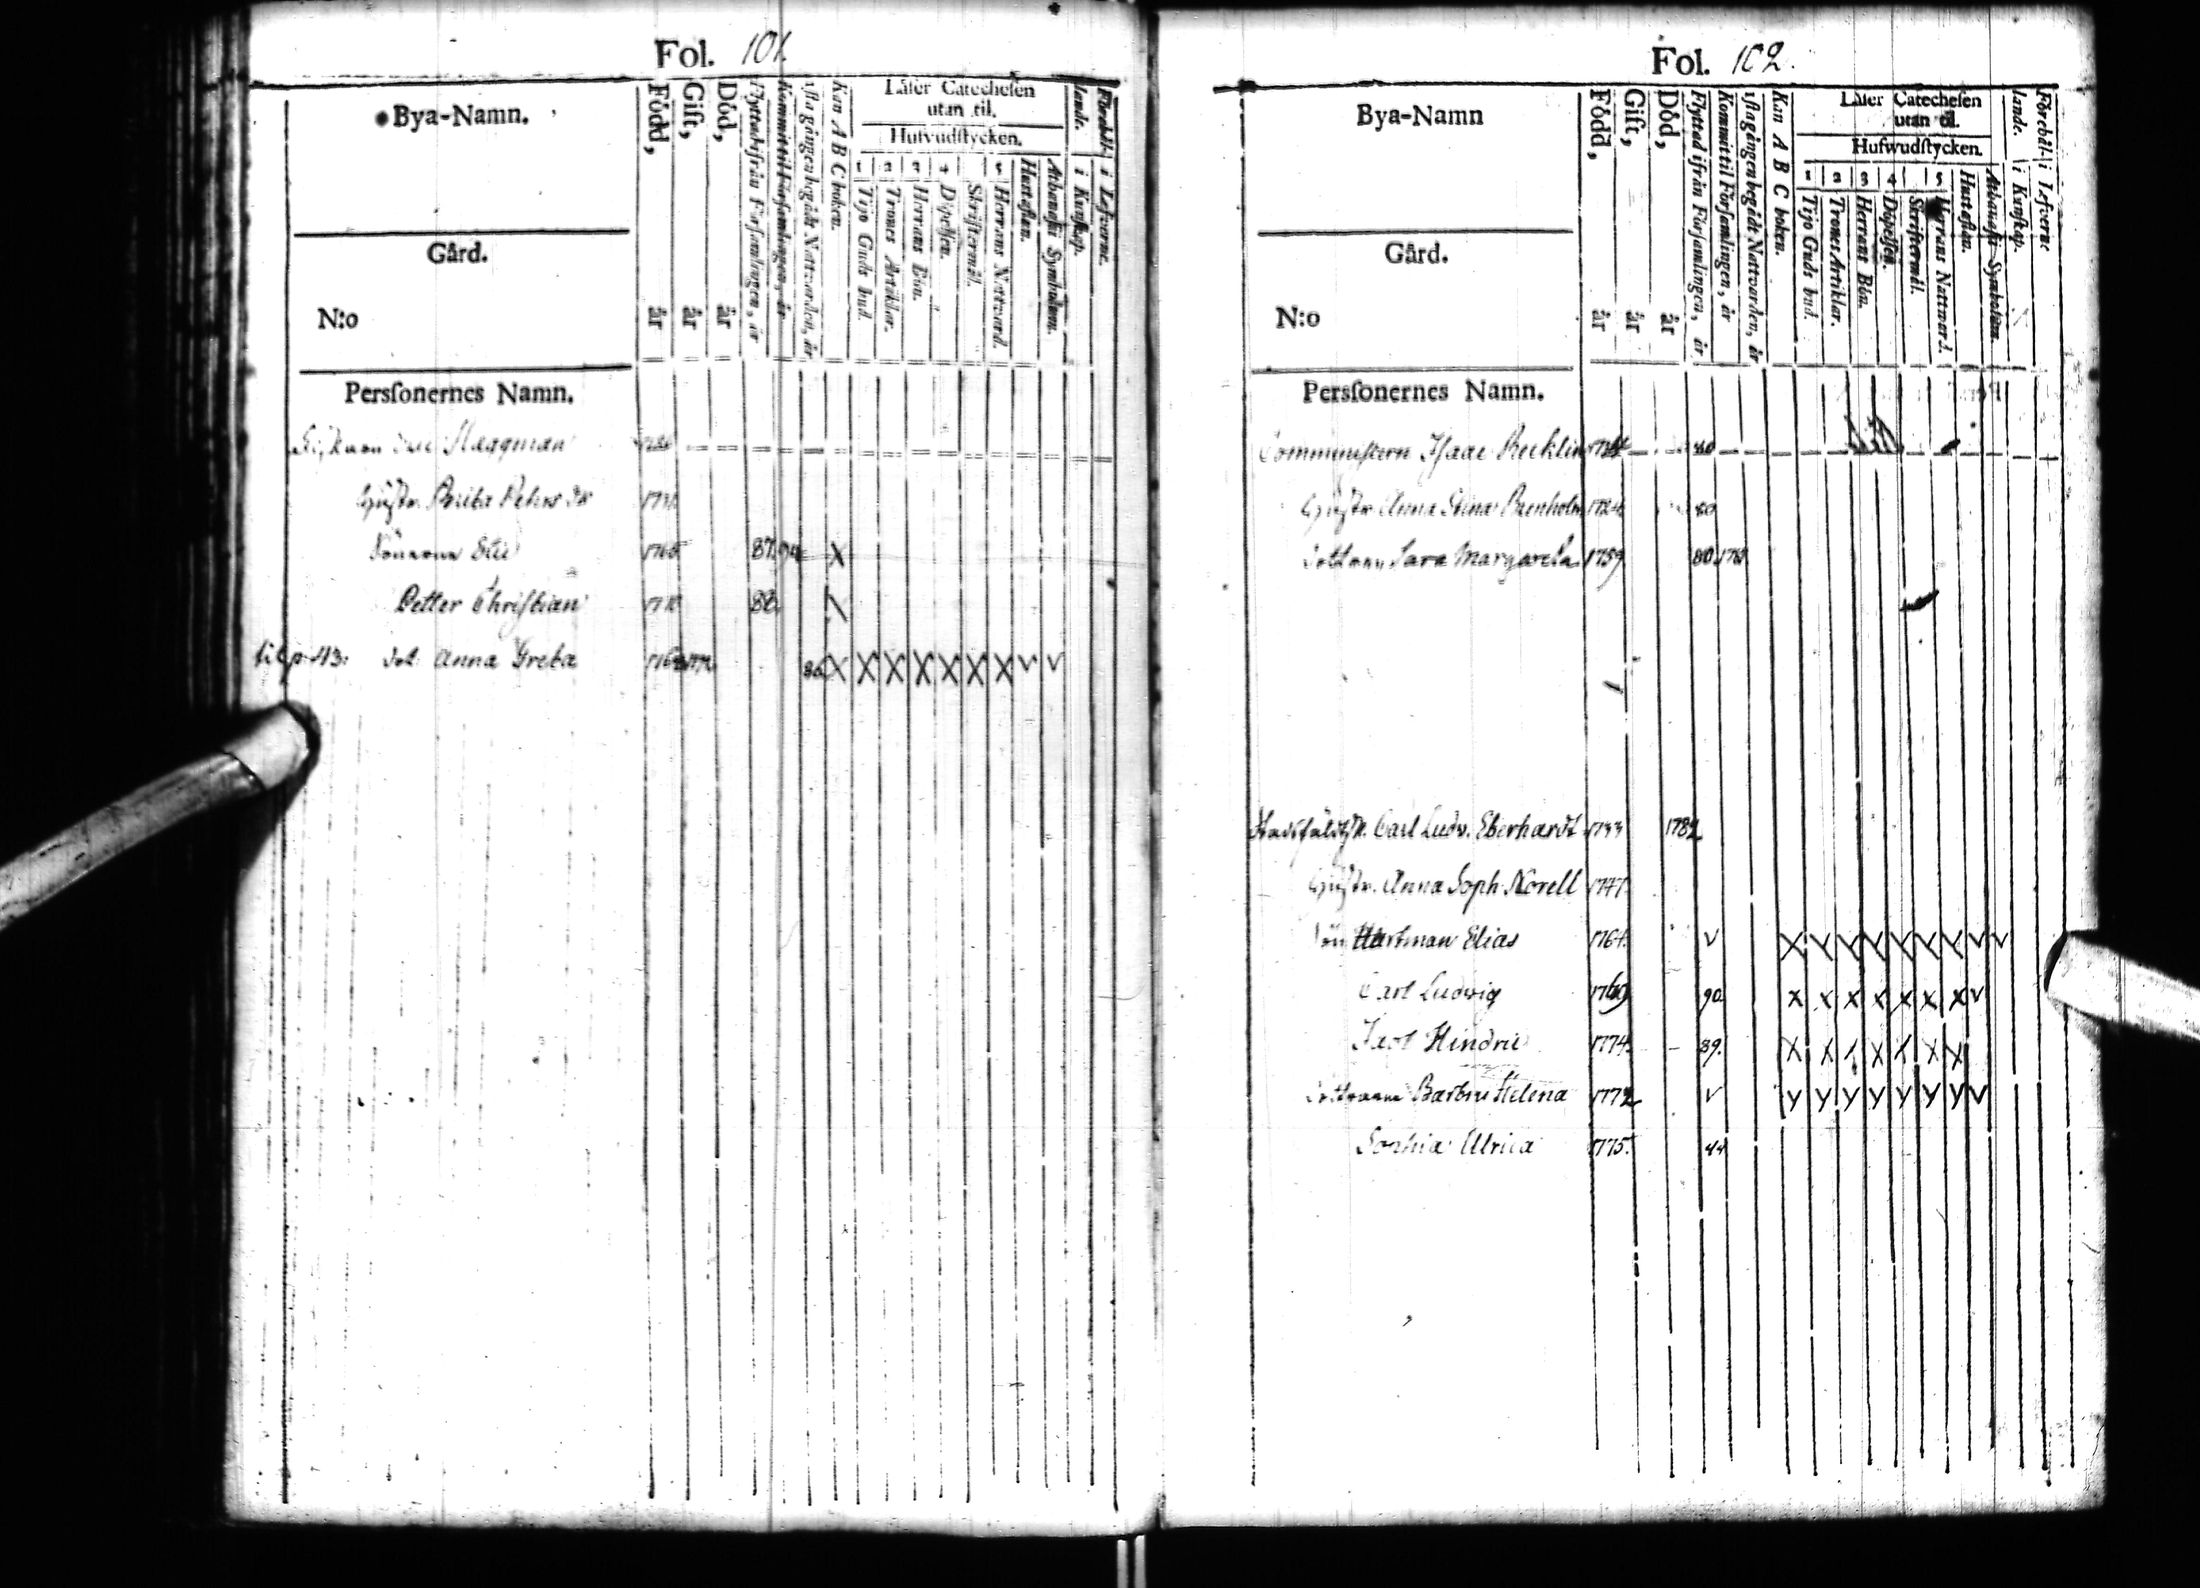 Fol. 101.
Bya-Namn.
Gård.
N:o
Persſonernes Namn.
Född, år
Gift, år
Död, år
Flyttad ifrån Församlingen, år
Kommit til Församlingen, år
ista gången begådt Nattvarden, år
Kan A B C boken.
Låser Catecheſen utan til.
Hufvudſtycken.
1 Tijo Guds bud.
2 Trones Artiklar.
3 Herrans Bön.
4 Döpelſen.
Skriftermål.
5 Herrans Nattvard.
Hustaflan.
Athanaſii Symbolum.
Förehål-lande.
i Kunſkap.
i Lefverne.
Haggman
Huſtr. Brita Pehrs dr
Sönerne Eric 87. X
Petter Christian 88.
til p. 113. dot. Anna Greta 86. X X X X X X X V V
Fol. 102.
Bya-Namn
Gård.
N:o
Persſonernes Namn.
Född, år
Gift, år
Död, år
Flyttad ifrån Församlingen, år
Kommit til Församlingen, år
ista gången begådt Nattvarden, år
Kan A B C boken.
Låser Catecheſen utan til.
Hufwudſtycken.
1 Tijo Guds bud.
2 Trones Artiklar.
3 Herrans Bön.
4 Döpelſen.
Skriftermål.
5 Herrans Nattvard.
Hustaflan.
Athanaſii Symbolum.
Förehål-lande.
i Kunſkap.
i Lefverne.
Comministern Iſaac 80
Huſtr. Anna Stina 80
Dottren Sara Margareta 1759 80
Carl Ludv. Eberhardt 1733 1782
Huſtr. Anna Soph. Norell 1747.
Son Hartman Elias 1764. V X Y Y Y Y Y Y V V
Carl Ludvig 1769 90. X X X X X X X V
Jacob Hindric 1774. 89. X X X X X X X
Döttrarne Barbru Helena 1772 V Y Y Y Y Y Y Y V
Sophia Ulrica 1775.